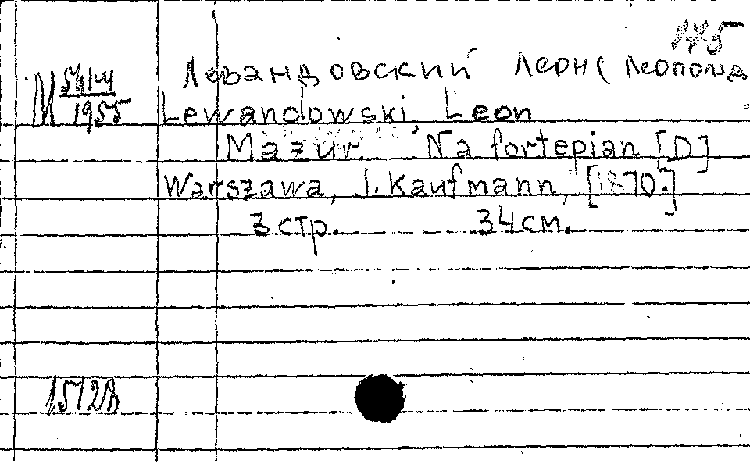 175
Левандовский Леон (Леопольд
Lewandowski, Leon
Mazur. Na fortepian [D]
Warszawa, J. Kaufmann, [1870.]
3 стр. 34 см.
1955